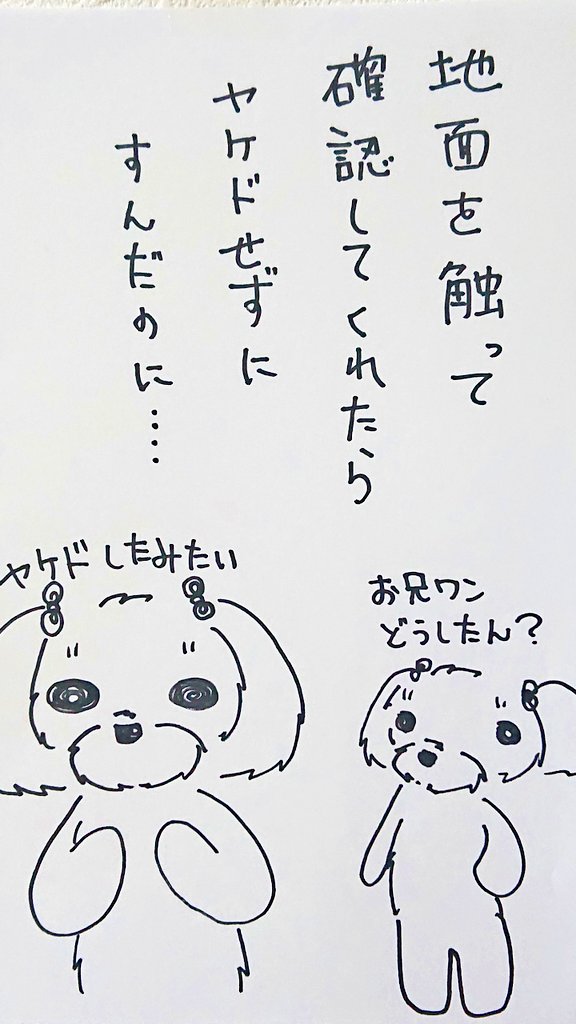 地面を触って
確認してくれたら
ヤケドせずに
すんだのに‥‥
ヤケドしたみたい
お兄ワン
どうしたん?